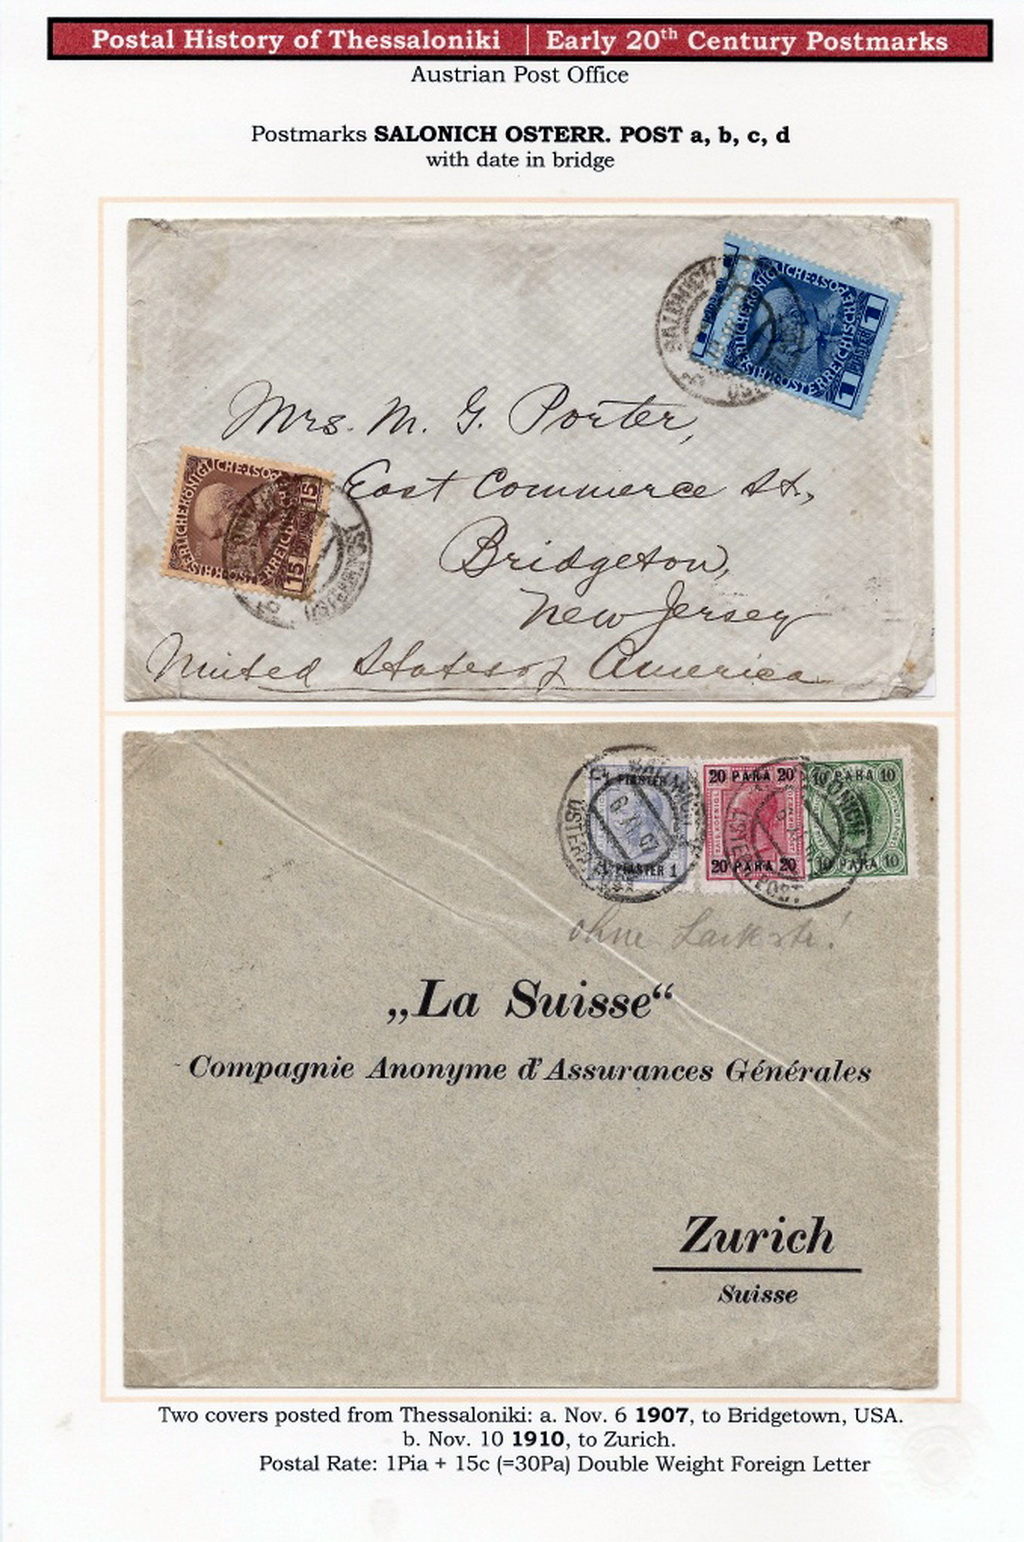 Postal History of Thessaloniki | Early 20th Century Postmarks
Austrian Post Office
Postmarks SALONICH OSTERR. POST a, b, c, d
with date in bridge
SALONICH
1 PIASTER 1
Mrs. M. G. Porter,
East Commerce St.,
Bridgeton,
New Jersey
United States of America
15 15
PIASTER 1
SALONICH
6 XI 07
PIASTER 1
20 PARA 20
20 PARA 20
10 PARA 10
10 PARA 10
ohne
„La Suisse“
Compagnie Anonyme d'Assurances Générales
Zurich
Suisse
Two covers posted from Thessaloniki: a. Nov. 6 1907, to Bridgetown, USA.
b. Nov. 10 1910, to Zurich.
Postal Rate: 1Pia + 15c (=30Pa) Double Weight Foreign Letter